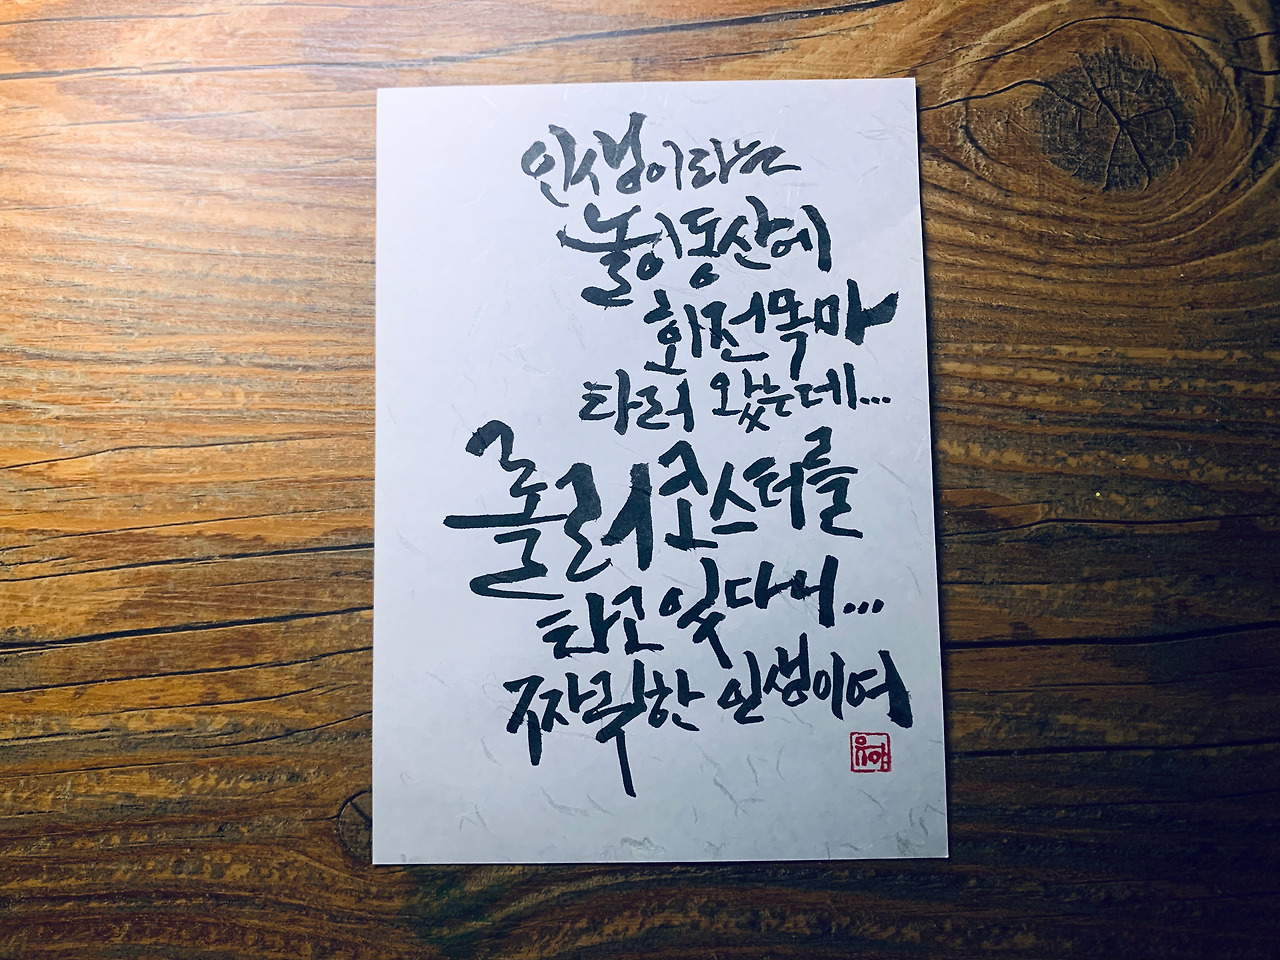 인생이라는
놀이동산에
회전목마
타러 왔는데...
롤러코스터를
타고 있다니...
짜릿한 인생이여
유아